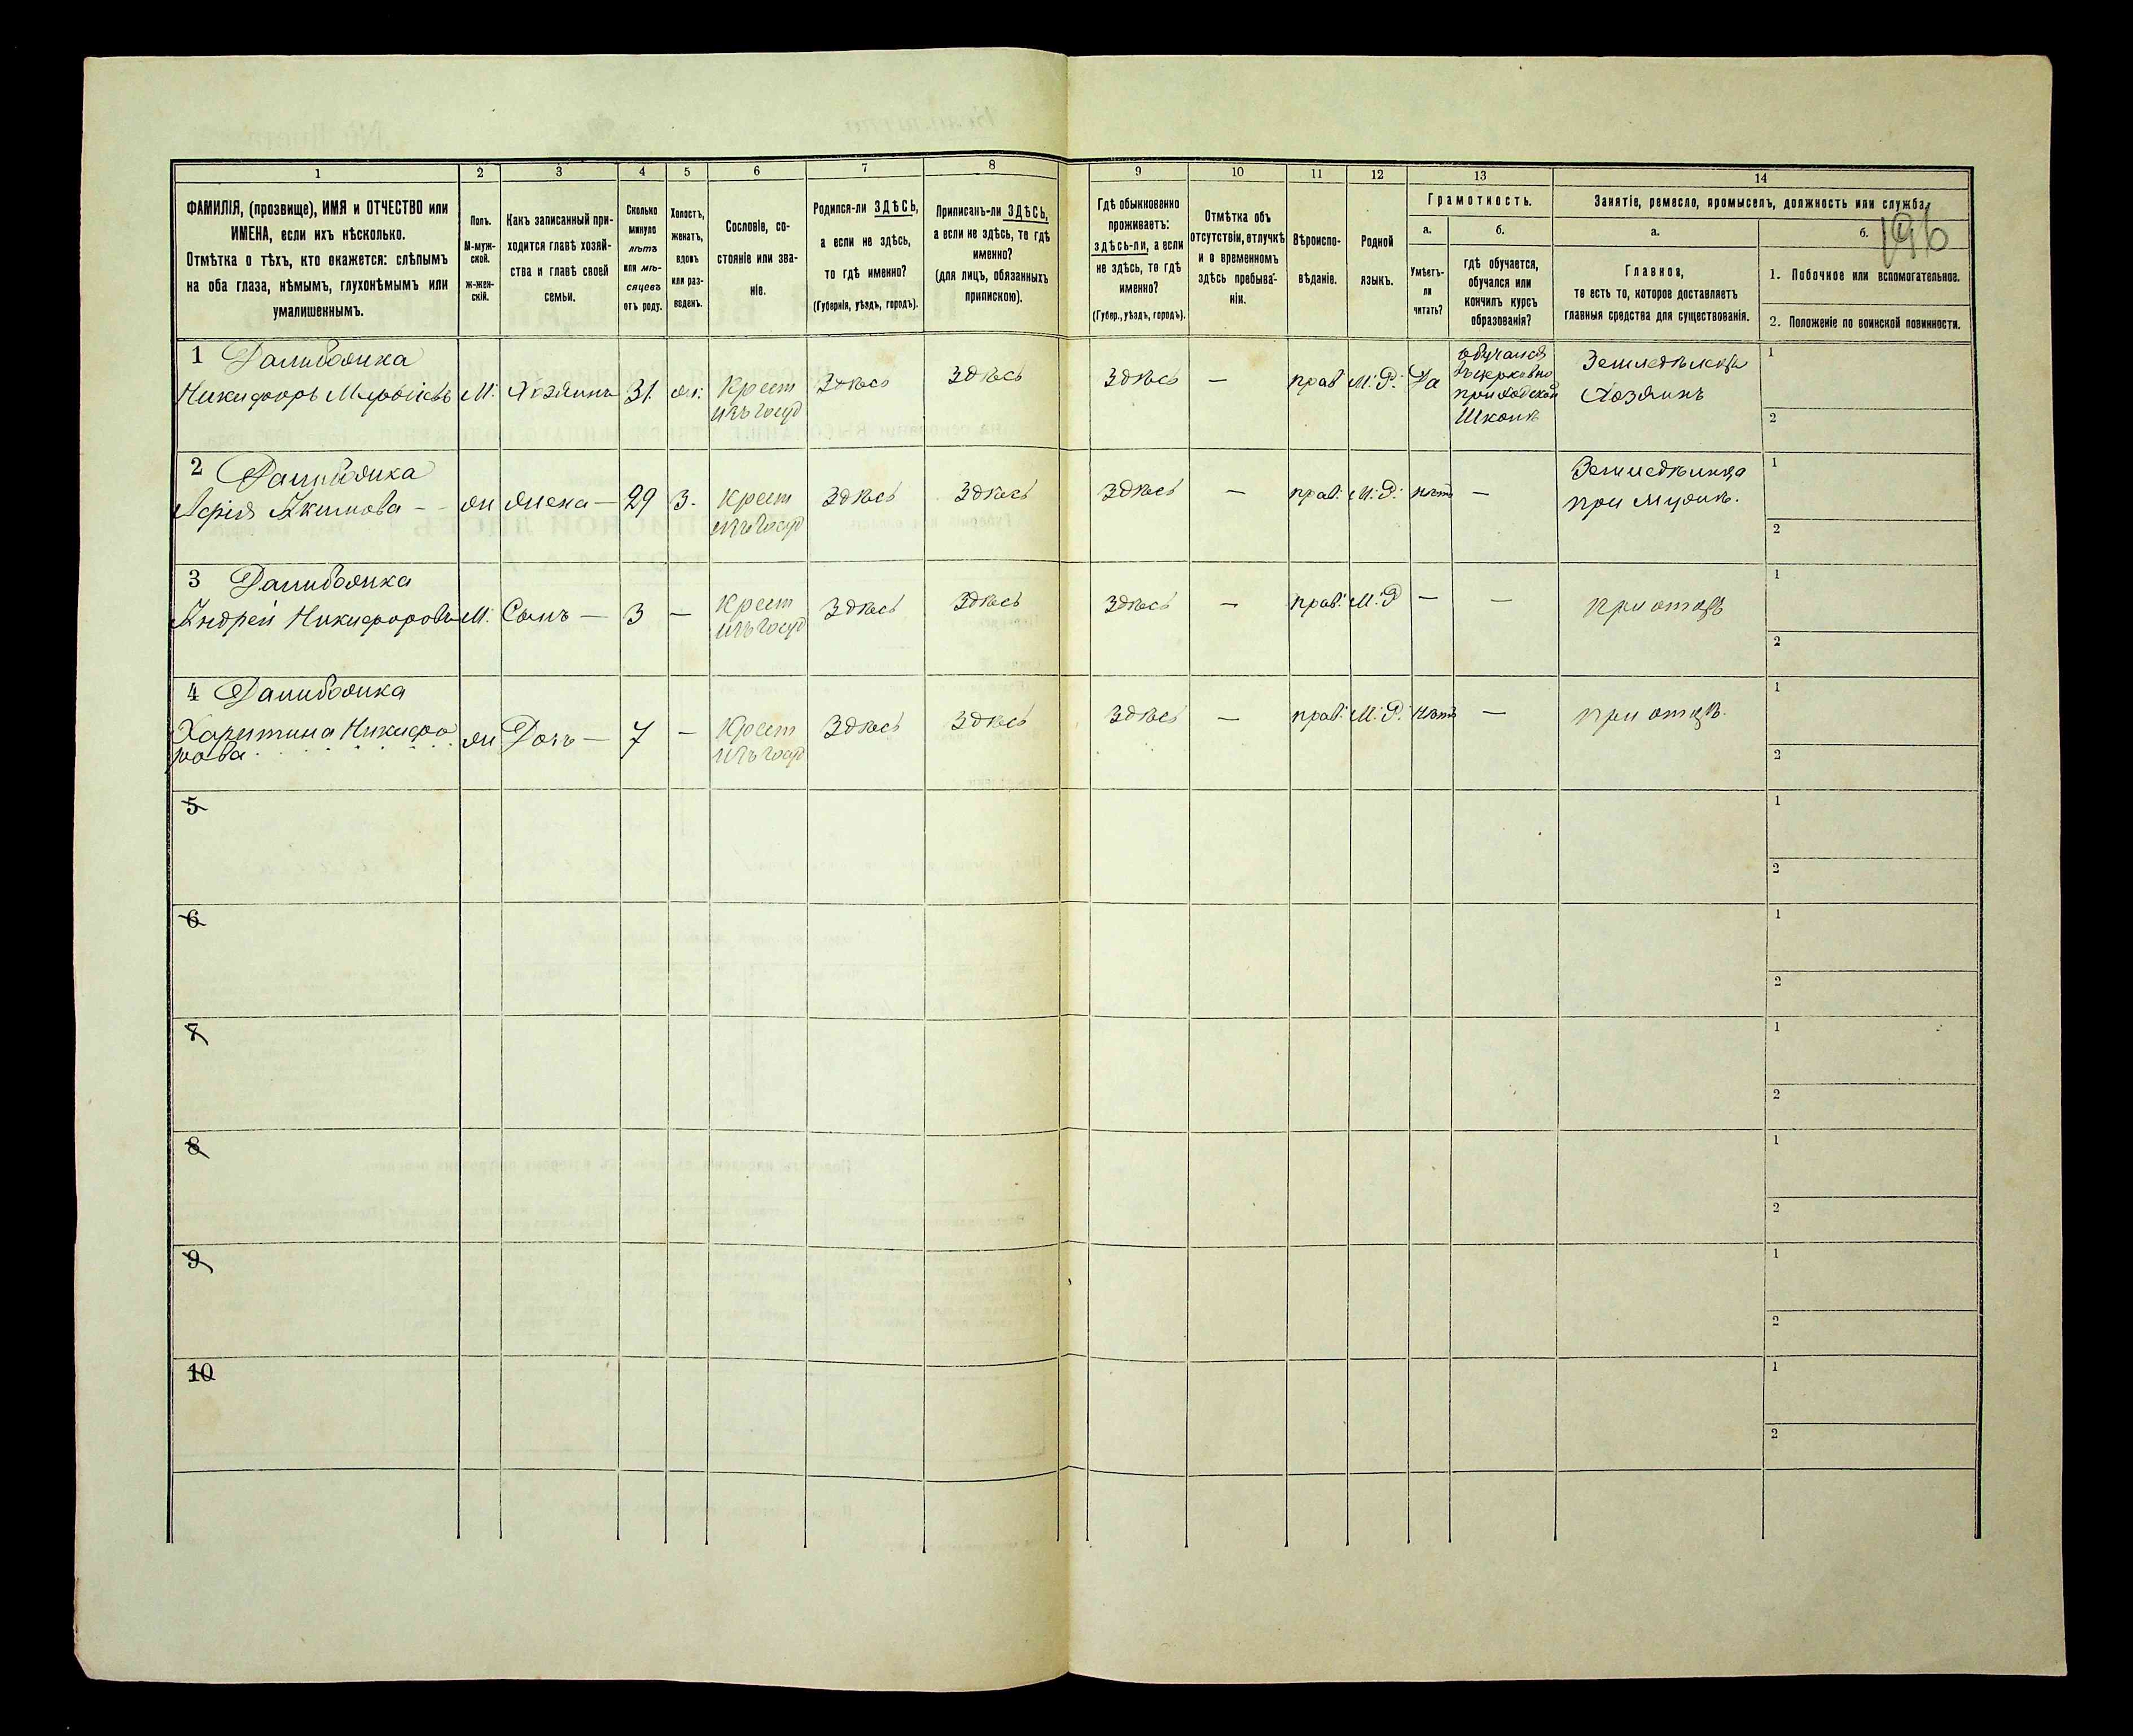 1 2 3 4 5 6 7 8 9 10 11 12 13 14
ФАМИЛІЯ, (прозвище), ИМЯ и ОТЧЕСТВО или
ИМЕНА, если ихъ нѣсколько.
Отмѣтка о тѣхъ, кто окажется: слѣпымъ
на оба глаза, нѣмымъ, глухонѣмымъ или
умалишеннымъ.
Полъ.
М-муж-
ской.
ж-жен-
скій.
Какъ записанный при-
ходится главѣ хозяй-
ства и главѣ своей
семьи.
Сколько
минуло
лѣтъ
или мѣ-
сяцевъ
отъ роду.
Холостъ,
женатъ,
вдовъ
или раз-
веденъ.
Сословіе, со-
стояніе или зва-
ніе.
Родился-ли ЗДѢСЬ,
а если не здѣсь,
то гдѣ именно?
(Губернія, уѣздъ, городъ).
Приписанъ-ли ЗДѢСЬ,
а если не здѣсь, то гдѣ
именно?
(для лицъ, обязанныхъ
припискою).
Гдѣ обыкновенно
проживаетъ:
здѣсь-ли, а если
не здѣсь, то гдѣ
именно?
(Губер., уѣздъ, городъ).
Отмѣтка объ
отсутствіи, отлучкѣ
и о временномъ
здѣсь пребыва-
ніи.
Вѣроиспо-
вѣданіе.
Родной
языкъ.
Грамотность.
а.
Умѣетъ-
ли
читать?
б.
гдѣ обучается,
обучался или
кончилъ курсъ
образованія?
Занятіе, ремесло, промыселъ, должность или служба.
а.
Главное,
то есть то, которое доставляетъ
главныя средства для существованія.
б.
196
1. Побочное или вспомогательное.
2. Положеніе по воинской повинности.
1 Далибожка
Никифоръ М: Хозяинъ 31. ж: Крест
изъ госуд
Здѣсь Здѣсь Здѣсь — прав М: Р: Да
обучался
въ церковно
приходской
Школѣ
Земледѣлецъ
Хозяинъ
1
2
2 Далибожка
Акимова — жи жена — 29 З. Крест
изъ госуд
Здѣсь Здѣсь Здѣсь — прав: М: Р: нѣтъ —
Земледѣлица
при мужѣ.
1
2
3 Далибожка
Андрей Никифоровъ М: Сынъ — 3 — Крест
изъ госуд
Здѣсь Здѣсь Здѣсь — прав: М: Р — —
при отцѣ
1
2
4 Далибожка
Харитина Никифо
рова жи Дочь — 7 — Крест
изъ госуд
Здѣсь Здѣсь Здѣсь — прав: М: Р: нѣтъ —
при отцѣ.
1
2
5
1
2
6
1
2
7
1
2
8
1
2
9
1
2
10
1
2